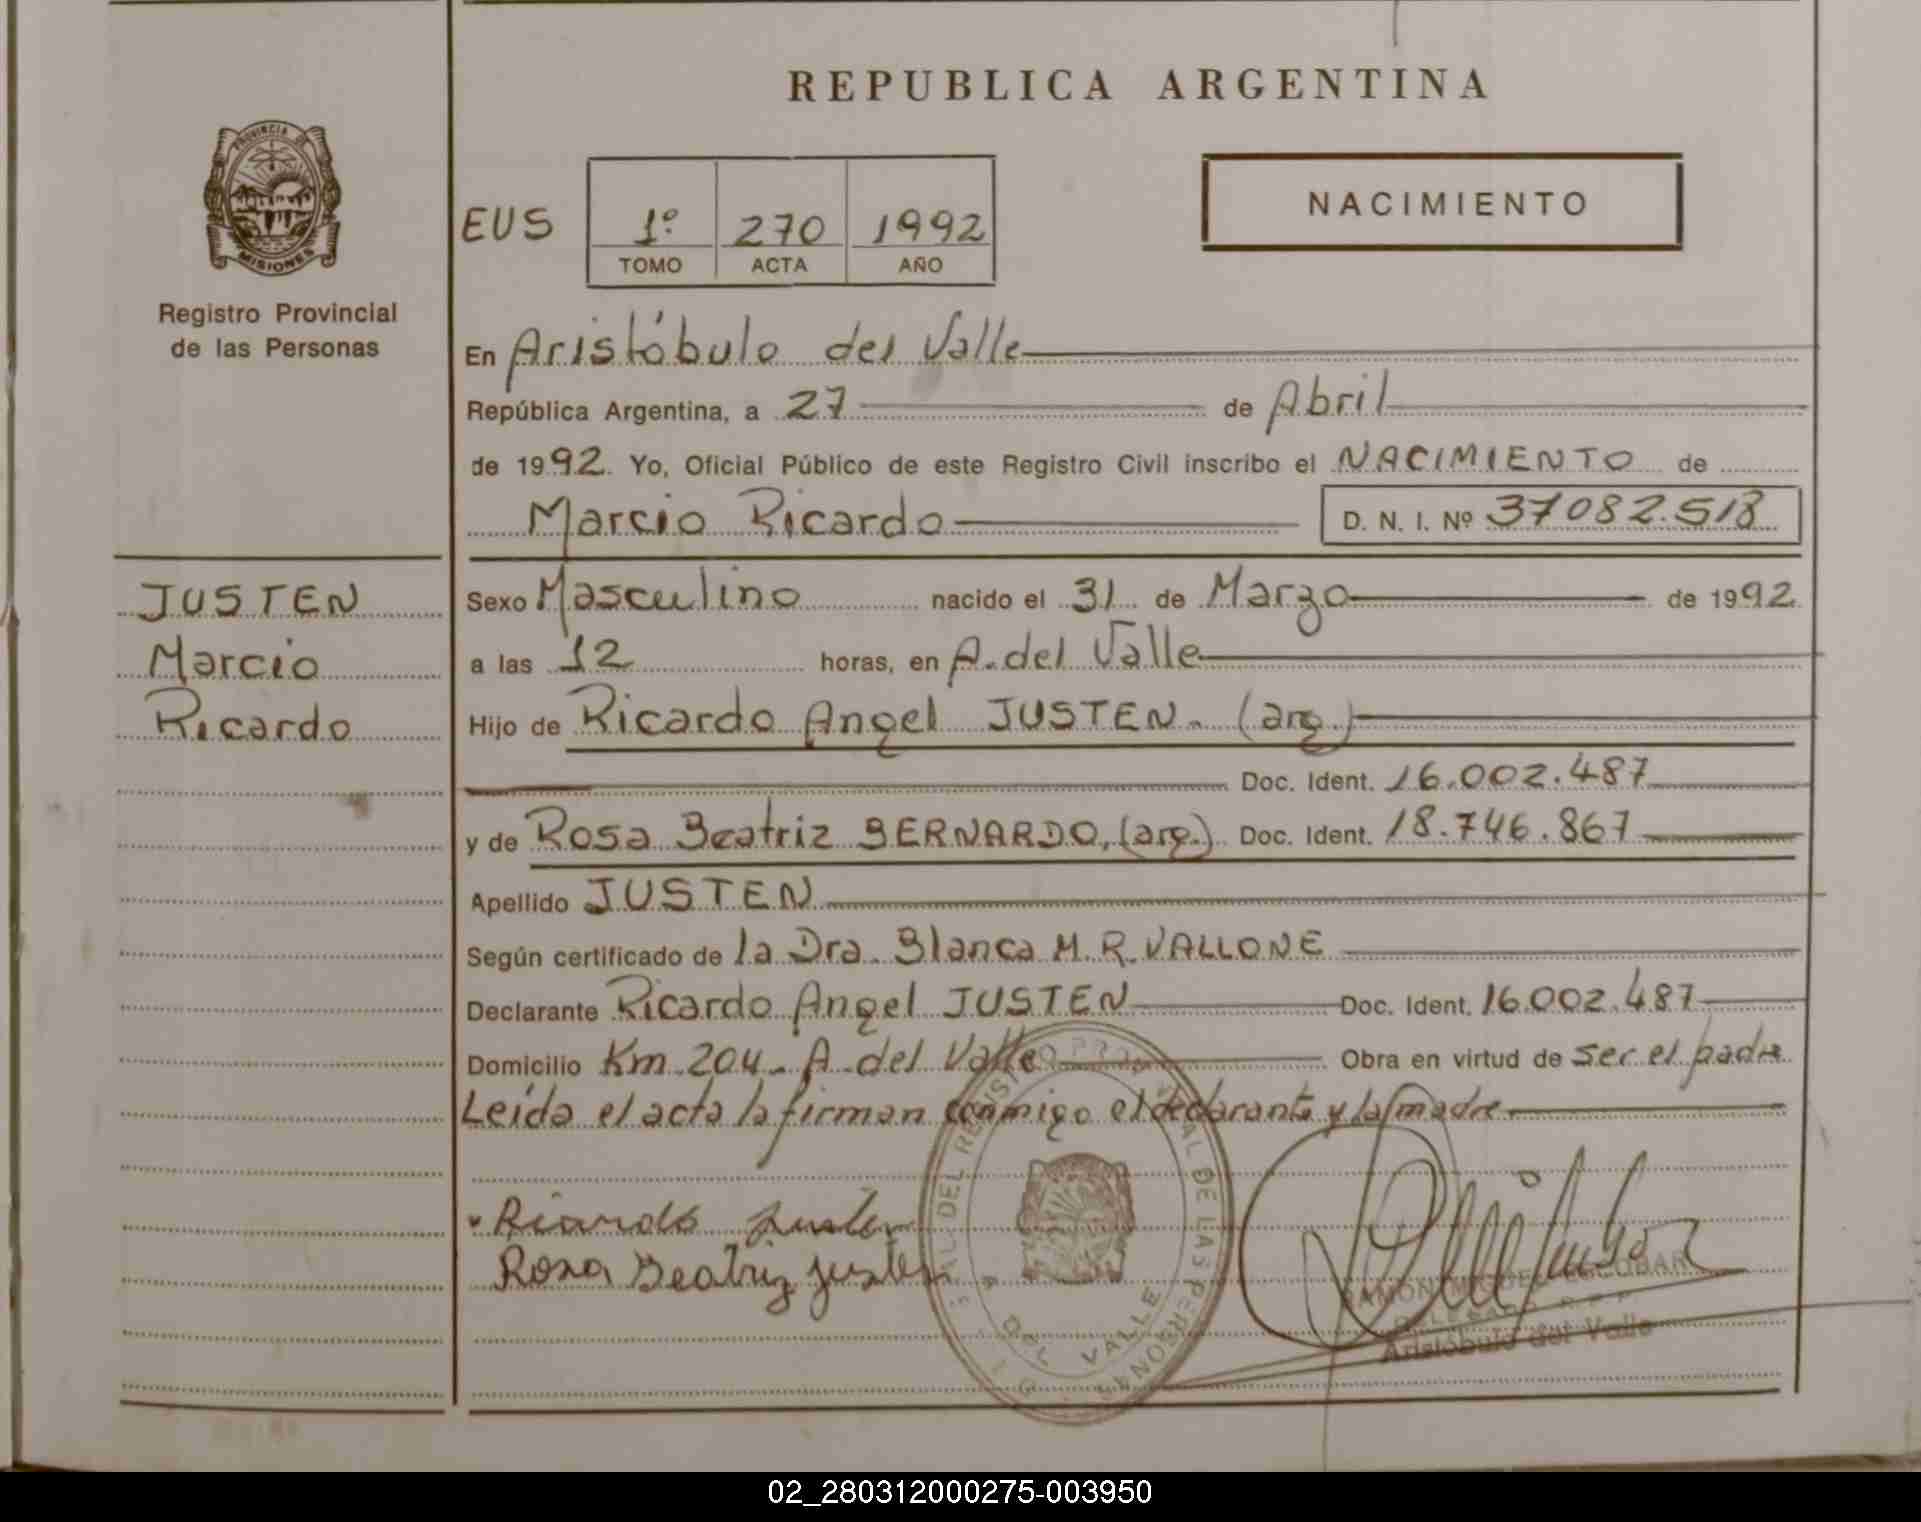 REPUBLICA ARGENTINA
PROVINCIA DE
MISIONES
Registro Provincial
de las Personas
EUS
1º 270 1992
TOMO ACTA AÑO
NACIMIENTO
En Aristóbulo del Valle
República Argentina, a 27 de Abril
de 1992. Yo, Oficial Público de este Registro Civil inscribo el NACIMIENTO de
Marcio Ricardo D. N. I. Nº 37082.518
JUSTEN
Marcio
Ricardo
Sexo Masculino nacido el 31 de Marzo de 1992
a las 12 horas, en A. del Valle
Hijo de Ricardo Angel JUSTEN. (arg.)
Doc. Ident. 16.002.487
y de Rosa Beatriz BERNARDO, (arg.) Doc. Ident. 18.746.867
Apellido JUSTEN
Según certificado de la Dra. Blanca M. R. VALLONE
Declarante Ricardo Angel JUSTEN Doc. Ident. 16.002.487
Domicilio Km. 204. A. del Valle Obra en virtud de ser el padre
Leída el acta la firman conmigo el declarante y la madre
Ricardo Justen
Rosa Beatriz Justen
DEL REGISTRO PROVINCIAL DE LAS PERSONAS
DEL VALLE
RAMON MIGUEL ESCOBAR
DELEGADO R.P.P.
Aristóbulo del Valle
02_280312000275-003950